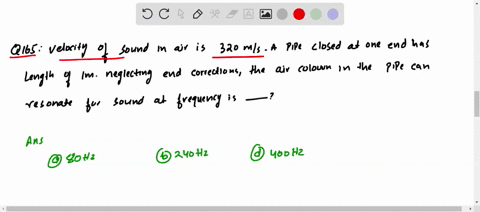 Q165: velocity of sound in air is 320 m/s. A pipe closed at one end has
length of 1m. neglecting end corrections, the air colown in the pipe can
resonate for sound at frequency is ___?
Ans
ⓐ 80Hz ⓑ 240Hz ⓓ 400Hz